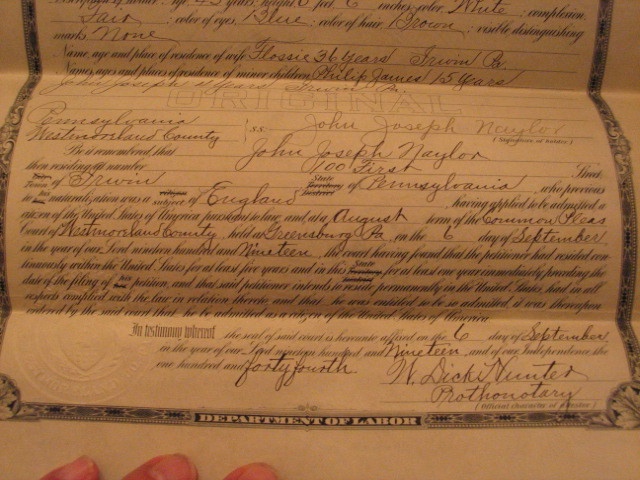 age, 45 years; height, 5 feet 6 inches; color, White; complexion,
Fair; color of eyes, Blue; color of hair, Brown; visible distinguishing
marks None
Name, age and place of residence of wife Flossie 36 Years Irwin Pa.
Names, ages and places of residence of minor children Philip James 15 Years
John Joseph Years Irwin Pa.
ORIGINAL
Pennsylvania
Westmoreland County
s.s:
John Joseph Naylor
(Signature of holder)
Be it remembered, that John Joseph Naylor
then residing at number 700 First Street
City of Irwin State Territory District of Pennsylvania, who previous
to his naturalization was a subject of England, having applied to be admitted a
citizen of the United States of America pursuant to law, and at a August term of the Common Pleas
Court of Westmoreland County, held at Greensburg Pa. on the 6 day of September
in the year of our Lord nineteen hundred and Nineteen, the court having found that the petitioner had resided con-
tinuously within the United States for at least five years and in this State Territory for at least one year immediately preceding the
date of the filing of his petition, and that said petitioner intends to reside permanently in the United States, had in all
respects complied with the law in relation thereto, and that he was entitled to be so admitted, it was thereupon
ordered by the said court that he be admitted as a citizen of the United States of America.
In testimony whereof the seal of said court is hereunto affixed on the 6 day of September
in the year of our Lord nineteen hundred and Nineteen, and of our Independence the
one hundred and forty fourth
W. Dick Hunter
Prothonotary
(Official character of attestor)
DEPARTMENT OF LABOR